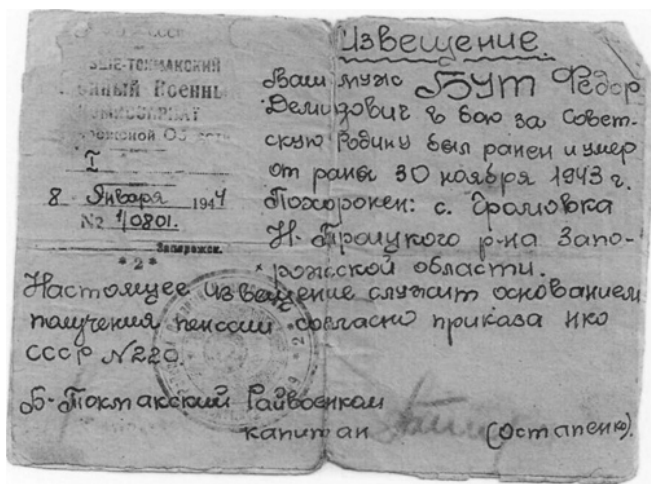 СССР
ЫШЕ-ТОКМАКСКИЙ
Военны
Об
I
8 Января 1944
№ 1/0801.
Запорожск.
* 2 *
Извещение.
Ваш муж БУТ Федор
Демидович в бою за Совет-
скую Родину был ранен и умер
от раны 30 ноября 1943 г.
Похоронен: с. Громовка
Н. Троицкого р-на Запо-
рожской области.
Настоящее извещение служит основанием
получения пенсии согласно приказа НКО
СССР №220.
Б-Токмакский Райвоенком
капитан (Остапенко).